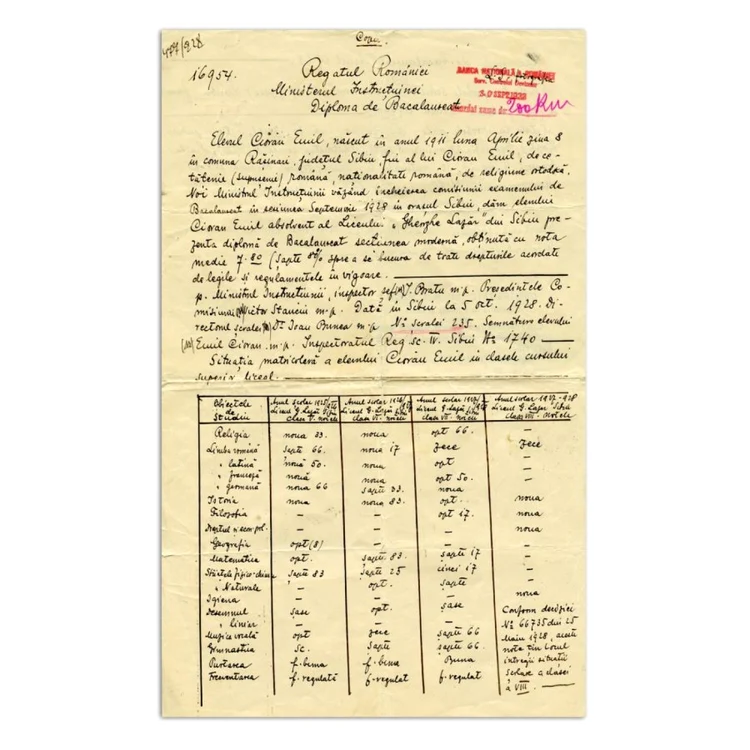 Copie.
477/928
16954.
Regatul României
Ministerul Instrucțiunei
Diploma de Bacalaureat
BANCA NAȚIONALĂ A ROMÂNIEI
200 Km
Elevul Cioran Emil, născut în anul 1911 luna Aprilie ziua 8
în comuna Rășinari, județul Sibiu, fiu al lui Cioran Emil, de ce-
tățenie (supușenie) română, naționalitate română, de religiune ortodoxă.
Noi Ministrul Instrucțiunii văzând încheierea comisiunii examenului de
Bacalaureat în sesiunea Septemvrie 1928 în orașul Sibiu, dăm elevului
Cioran Emil absolvent al Liceului „Gheorghe Lazăr" din Sibiu pre-
zenta diplomă de Bacalaureat secțiunea modernă, obținută cu nota
medie 7.80 (șapte 80%) spre a se bucura de toate drepturile acordate
de legile și regulamentele în vigoare.
p. Ministrul Instrucțiunii, inspector șef (ss) I. Bratu m.p. Președintele Co-
misiunii (ss) Victor Stanciu m.p. Dată în Sibiu la 5 oct. 1928. Di-
rectorul școalei (ss) Dr. Ioan Bunea m.p. No școalei 235. Semnătura elevului
(ss) Emil Cioran m.p. Inspectoratul Reg. șc. IV. Sibiu No 1740
Situația matricolară a elevului Cioran Emil în clasele cursului
superior liceal.
Obiectele de Studiu | Anul școlar Liceul G. Lazăr clasa V. notele | Anul școlar Liceul G. Lazăr clasa VI. notele | Anul școlar Liceul G. Lazăr clasa VII. notele | Anul școlar 1927-1928 Liceul G. Lazăr Sibiu clasa VIII. notele
Religia | noua 33. | noua | opt 66. | –
Limba română | șapte 66. | nouă 17 | zece | zece
„ latină | nouă 50. | noua | opt | –
„ franceză | nouă | noua | opt 50. | –
„ germană | noua 66 | șapte 33. | noua | –
Istoria | noua | noua 83. | opt. | noua
Filosofia | – | – | opt 17. | noua
Dreptul și econ. pol. | – | – | – | noua
Geografia | opt (8) | – | – | –
Matematica | opt | șapte 83. | șapte 17 | –
Științele fizico-chimice | șapte 83 | șapte 25 | cinci 17 | –
„ Naturale | – | opt. | șapte | –
Igiena | – | – | – | noua
Desemnul | șase | opt. | șase | Conform deciziei
„ liniar | – | – | – | No 66735 din 25
Muzica vocală | opt | zece | șapte 66 | Maiu 1928, aceste
Gimnastica | sc. | șapte | șapte 66. | note țin locul
Purtarea | f. buna | f. buna | Buna | întregii situații
Frecventarea | f. regulată | f. regulat | f. regulat | școlare a clasei
a VIII.